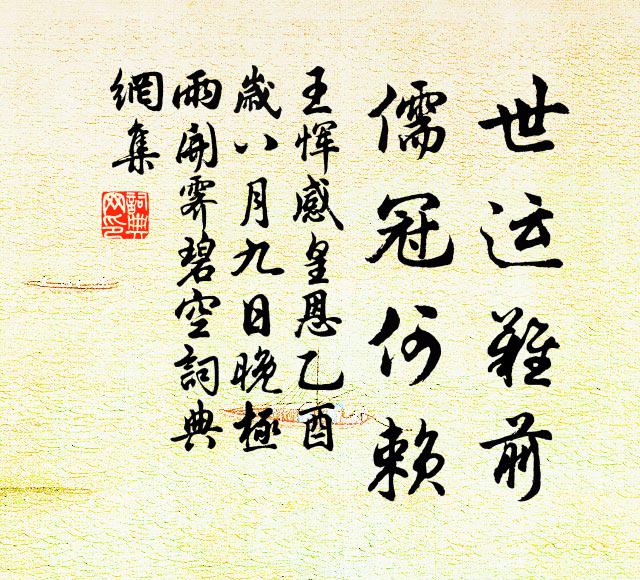 世运難前
儒冠何賴
王恽感皇恩乙酉
歲八月九日晚極
雨開霽碧空詞典
網集
詞典網印